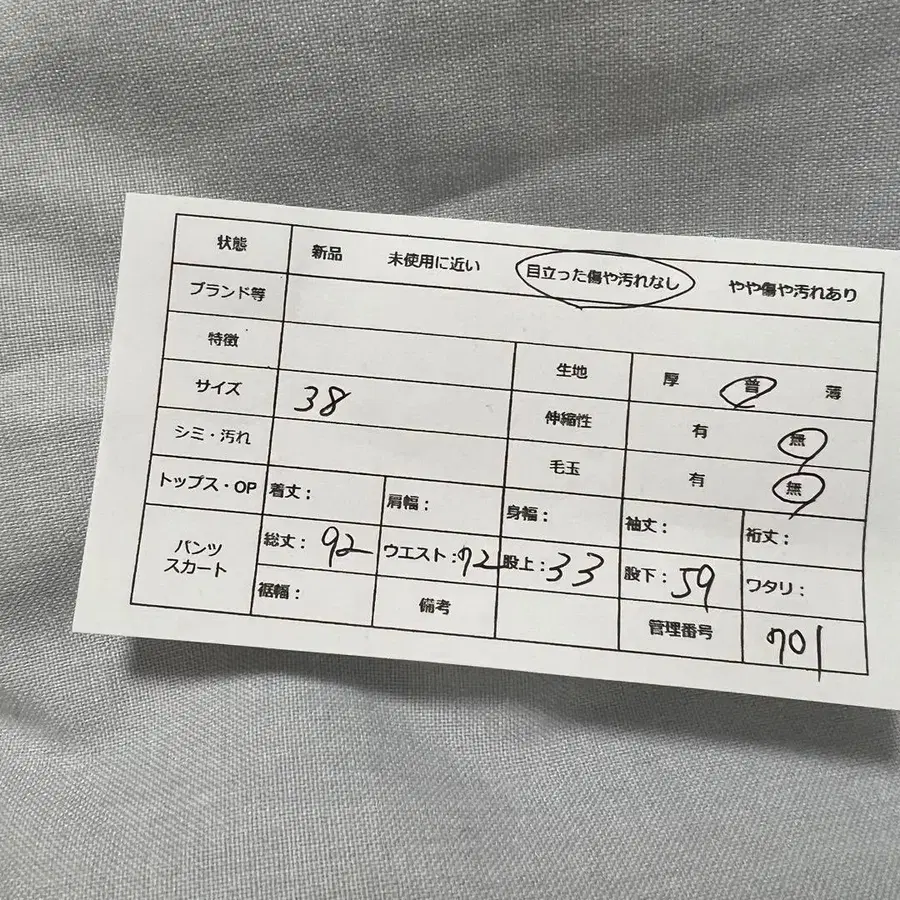 状態 新品 未使用に近い 目立った傷や汚れなし やや傷や汚れあり
ブランド等
特徴 生地 厚 普 薄
サイズ 38 伸縮性 有 無
シミ・汚れ 毛玉 有 無
トップス・OP 着丈： 肩幅： 身幅： 袖丈： 裄丈：
パンツ スカート 総丈：92 ウエスト：72 股上：33 股下：59 ワタリ：
裾幅： 備考 管理番号 701